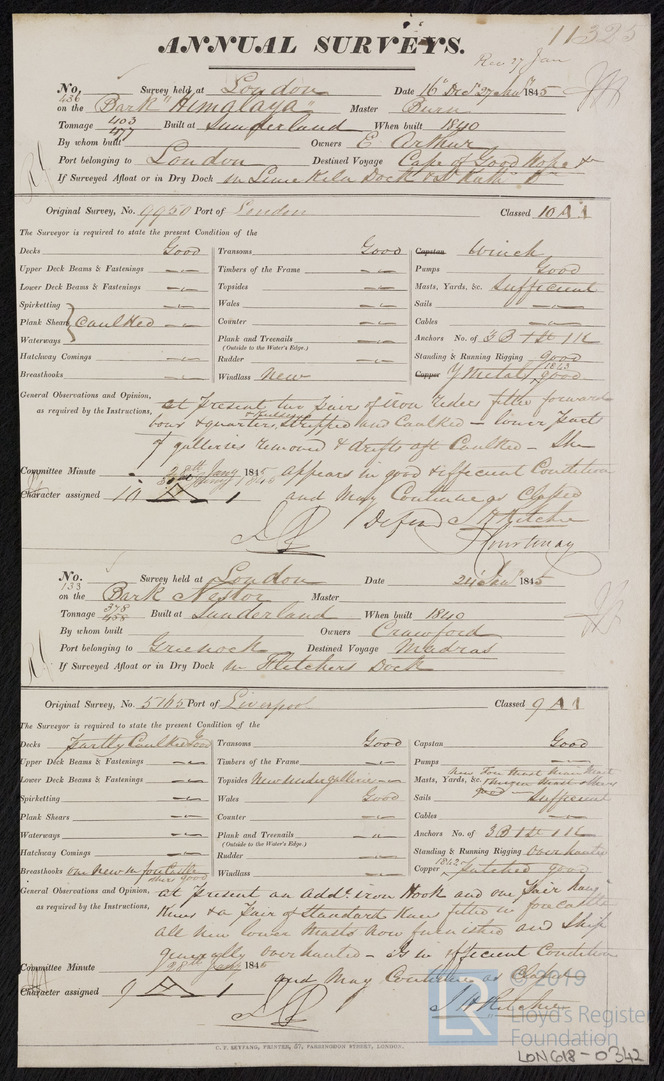 11325
ANNUAL SURVEYS.
Rec 27 Jan
No. 436 Survey held at London Date 16 Decr 27 Jany 1845
on the Bark "Himalaya" Master Burn
Tonnage 403 477 Built at Sunderland When built 1840
By whom built Owners E. Arthur
Port belonging to London Destined Voyage Cape of Good Hope &a
If Surveyed Afloat or in Dry Dock in Lime Kiln Dock & St Kath" D"
Original Survey, No. 9950 Port of London Classed 10 A 1
The Surveyor is required to state the present Condition of the
Decks Good Transoms Good Capstan Winch
Upper Deck Beams & Fastenings Timbers of the Frame Pumps Good
Lower Deck Beams & Fastenings Topsides Masts, Yards, &c. Sufficient
Spirketting Wales Sails
Plank Shears Caulked Counter Cables
Waterways Plank and Treenails Anchors No. of 3 B 1 St 1 K
(Outside to the Water's Edge.)
Hatchway Comings Rudder Standing & Running Rigging good
Breasthooks Windlass New Copper Y Metal 1843 good
General Observations and Opinion, at Present two Pairs of iron riders fitted forward
as required by the Instructions, bows & quarters stripped and Caulked - lower Parts
of galleries removed & drifts aft Caulked - She
Committee Minute 28th Jany 1845 appears in good & efficient Condition
Character assigned 10 A 1 and May Continue as Classed
J H Ritchie
Courtenay
No. 133 Survey held at London Date 24 Jany 1845
on the Bark Nestor Master
Tonnage 378 458 Built at Sunderland When built 1840
By whom built Owners Crawford
Port belonging to Greenock Destined Voyage Madras
If Surveyed Afloat or in Dry Dock in Fletchers Dock
Original Survey, No. 5765 Port of Liverpool Classed 9 A 1
The Surveyor is required to state the present Condition of the
Decks Partly Caulked Good Transoms Good Capstan Good
Upper Deck Beams & Fastenings Timbers of the Frame Pumps
Lower Deck Beams & Fastenings Topsides New under galleries Masts, Yards, &c. New Fore Mast Main Mast Mizen Mast others good
Spirketting Wales Good Sails Sufficient
Plank Shears Counter Cables
Waterways Plank and Treenails Anchors No. of 3 B 1 St 1 K
(Outside to the Water's Edge.)
Hatchway Comings Rudder Standing & Running Rigging Overhauled
Breasthooks one New in forecastle others good Windlass Copper 1842 Patched good
General Observations and Opinion, at Present an addl iron Hook and one Pair hang
as required by the Instructions, Knees & a Pair of Standard Knees fitted in forecastle
all New lower Masts Now furnished and Ship
generally overhauled - is in efficient Condition
Committee Minute 28th Jany 1845 and May Continue as Classed
Character assigned 9 A 1 J H Ritchie
© 2019
LR Lloyd's Register
Foundation
C. F. SEYFANG, PRINTER, 57, FARRINGDON STREET, LONDON.
LON618-0342